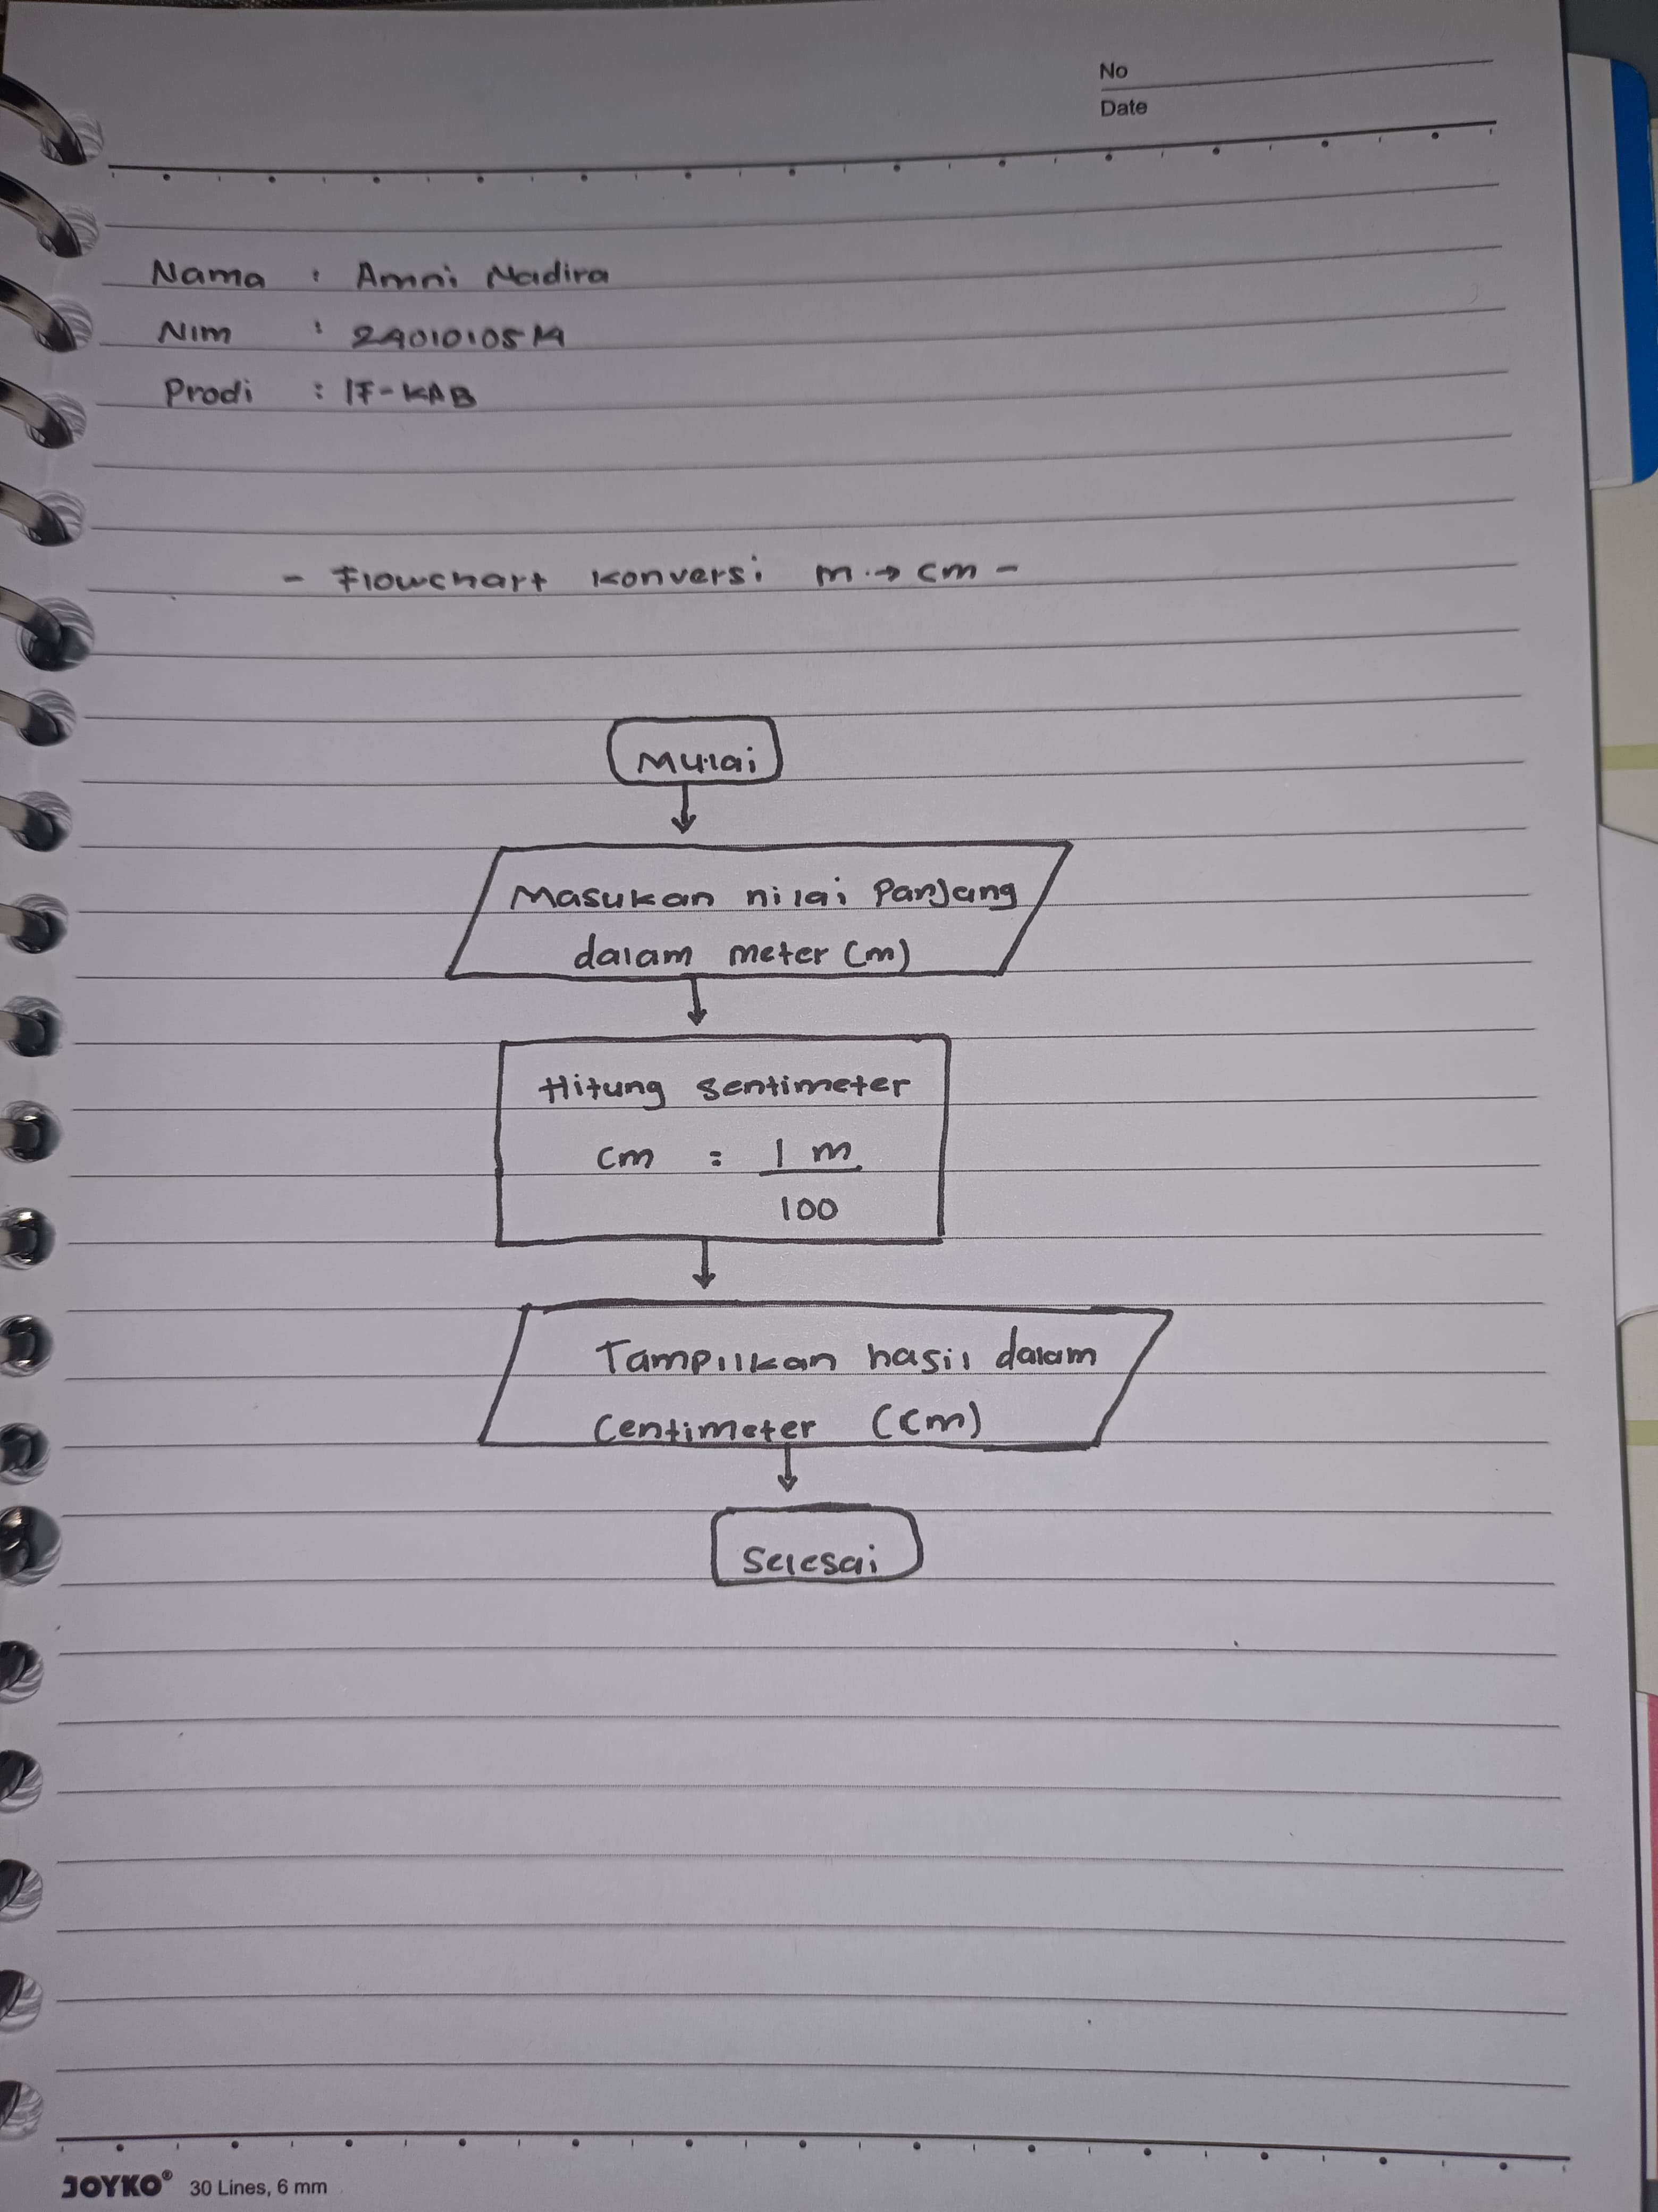 No
Date
Nama : Amni Nadira
Nim :
Prodi : IF-KAB
- Flowchart konversi m → cm -
Mulai
Masukan nilai Panjang
dalam meter (m)
Hitung sentimeter
cm = 1 m
100
Tampilkan hasil dalam
Centimeter (cm)
Selesai
JOYKO® 30 Lines, 6 mm